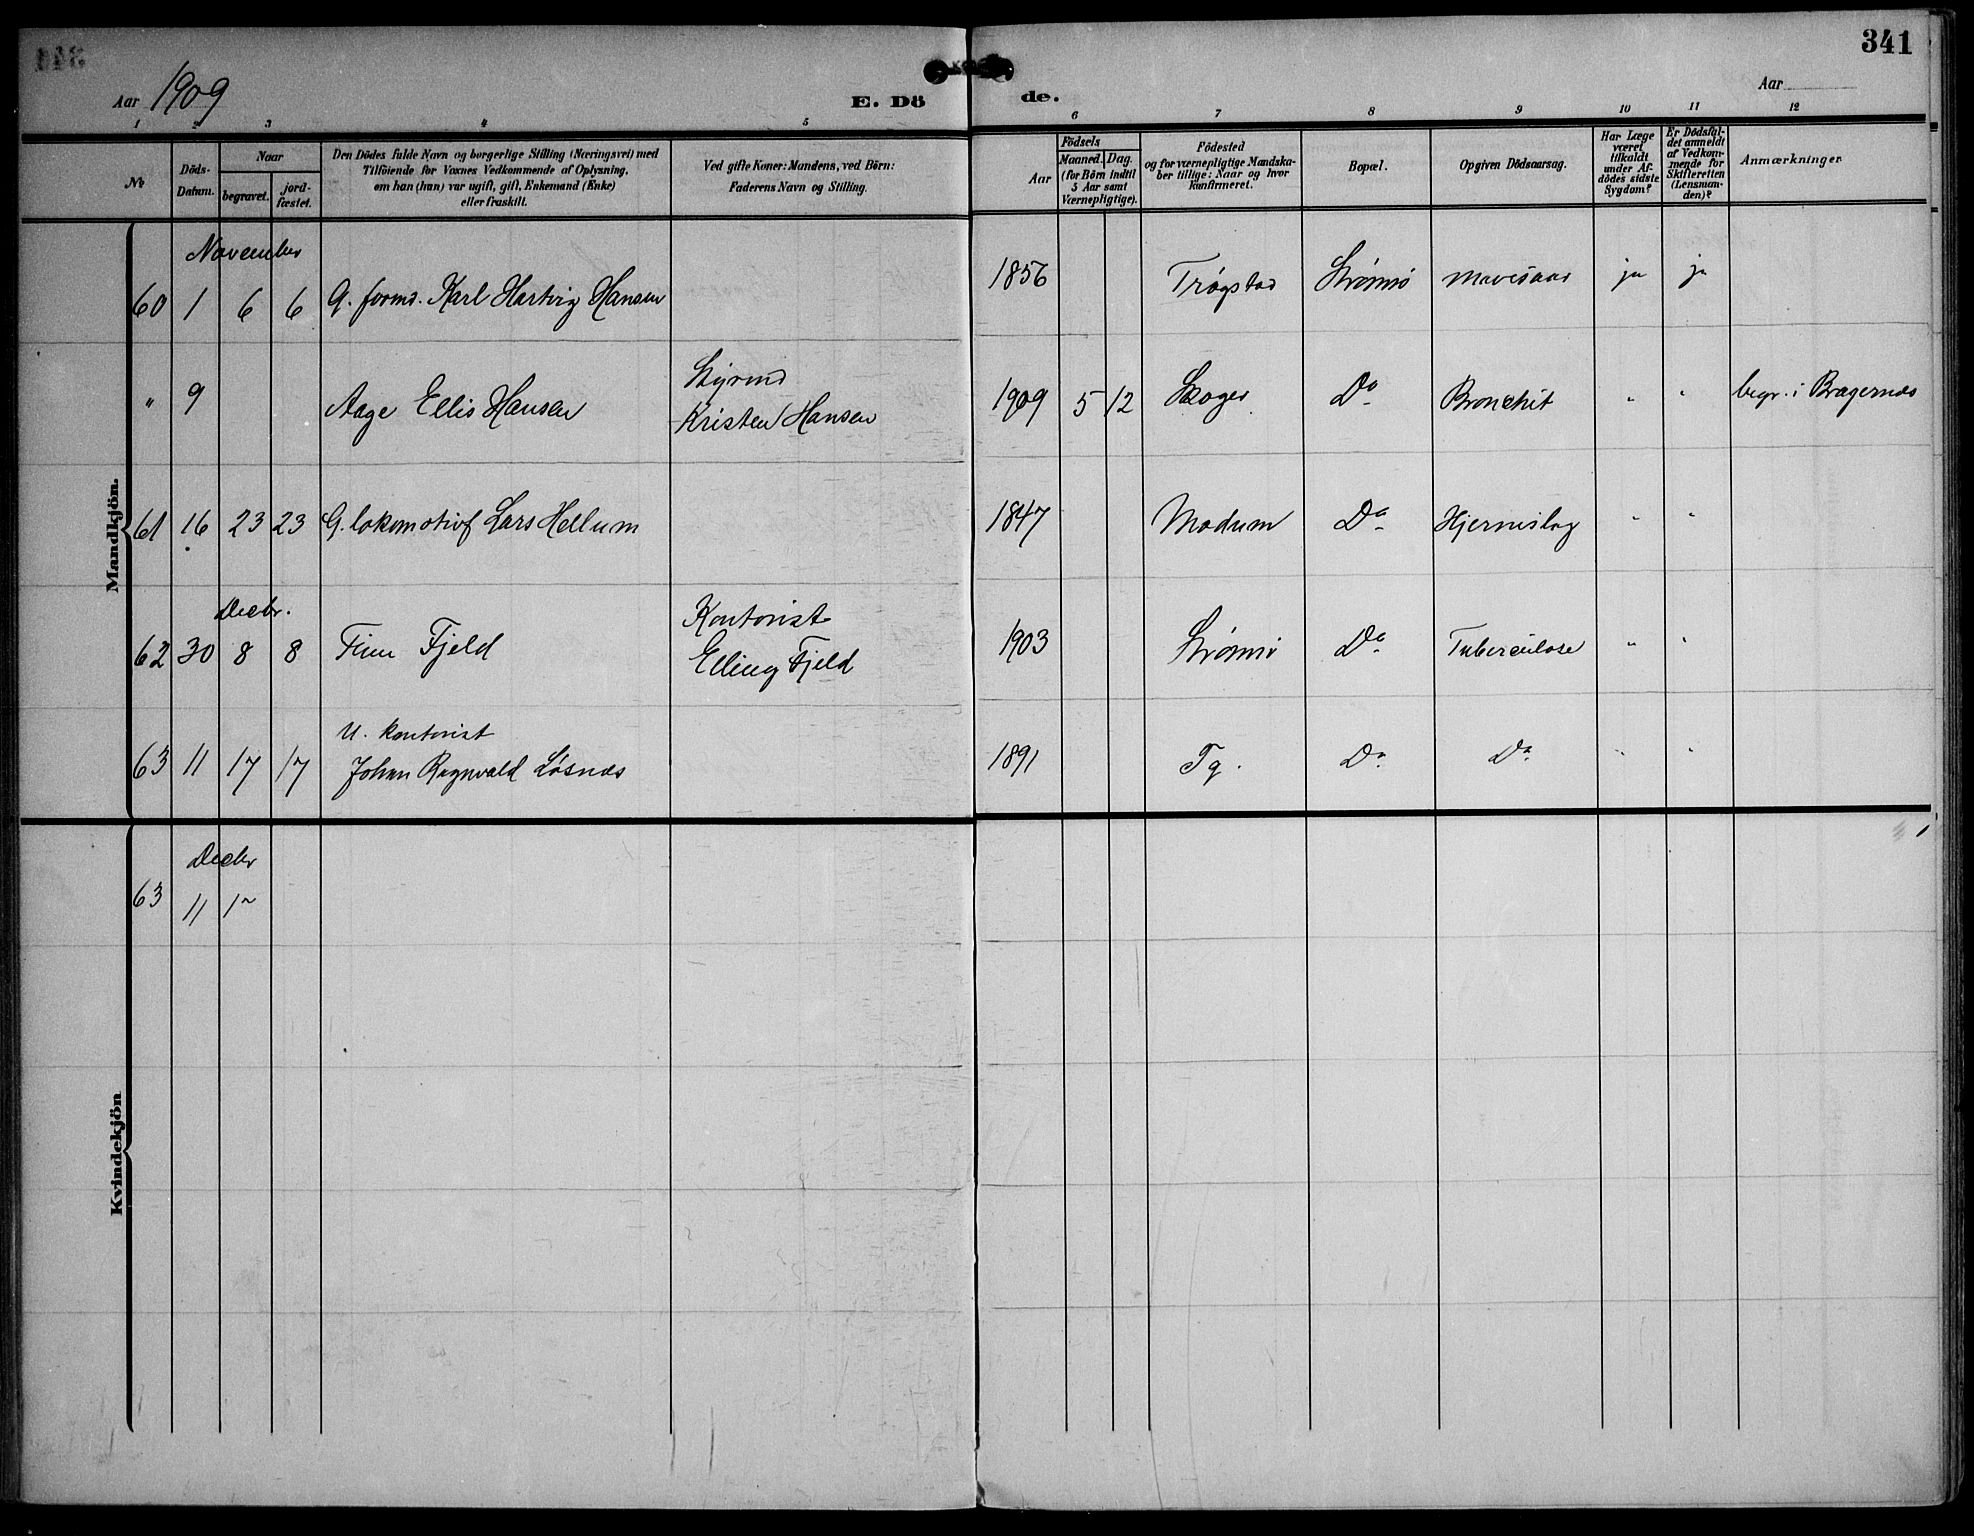 341
Aar 1909
E. Dö
de.
Aar
1 2 3 4 5 6 7 8 9 10 11 12
No
Döds-
Datum.
Naar
begravet.
jord-
fæstet.
Den Dödes fulde Navn og borgerlige Stilling (Næringsvei) med
Tilföiende for Voxnes Vedkommende af Oplysning,
om han (hun) var ugift, gift, Enkemand (Enke)
eller fraskilt.
Ved gifte Koner: Mandens, ved Börn:
Faderens Navn og Stilling.
Födsels
Aar
Maaned. Dag.
(for Börn indtil
5 Aar samt
Værnepligtige).
Födested
og for værnepligtige Mandska-
ber tillige: Naar og hvor
konfirmeret.
Bopæl.
Opgiven Dödsaarsag.
Har Læge
været
tilkaldt
under Af-
dödes sidste
Sygdom?
Er Dödsfal-
det anmeldt
af Vedkom-
mende for
Skifteretten
(Lensman-
den)?
Anmærkninger
Mandkjön.
November
60 1 6 6 G. formd. Karl Hartvig Hansen 1856 Trøgstad Strømsø Mavesaar ja ja
Styrmd
" 9 Aage Ellis Hansen Kristen Hansen 1909 5 12 Skoger Do Bronchit " " begr. i Bragernæs
61 16 23 23 G. lokomotivf Lars Hellum 1847 Modum Do Hjerneslag " "
Decbr.
Kontorist
62 30 8 8 Finn Fjeld Elling Fjeld 1903 Strømsø Do Tuberculose " "
U. kontorist
63 11 17 17 Johan Ragnvald Løsnæs 1891 Tg. Do Do " "
Kvindekjön
Decbr
63 11 17